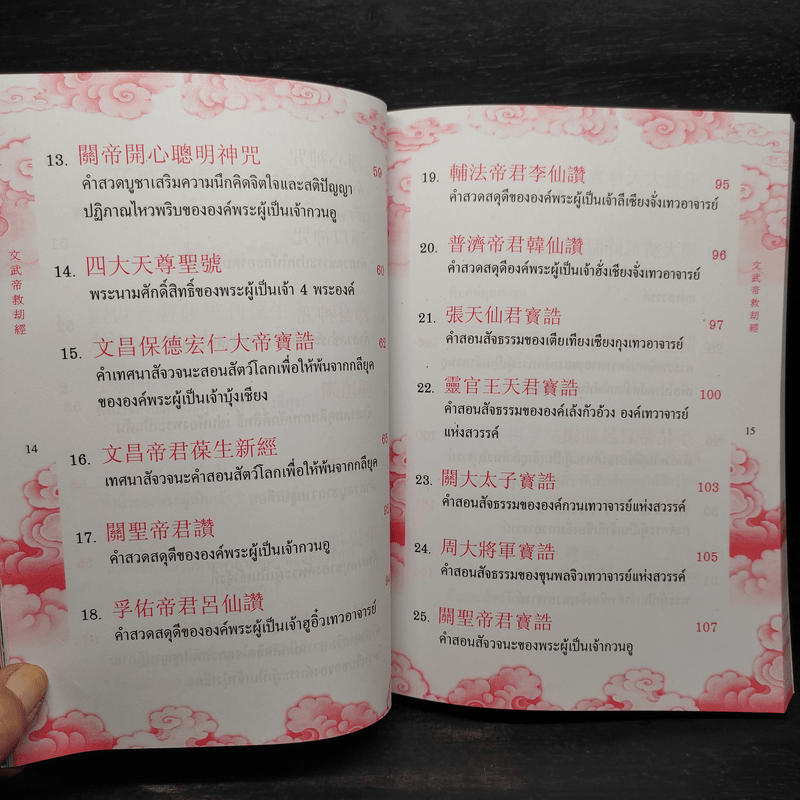 文武帝救劫經
14
13. 關帝開心聰明神咒 59
คำสวดบูชาเสริมความนึกคิดจิตใจและสติปัญญา
ปฏิภาณไหวพริบขององค์พระผู้เป็นเจ้ากวนอู
14. 四大天尊聖號 60
พระนามศักดิ์สิทธิ์ของพระผู้เป็นเจ้า 4 พระองค์
15. 文昌保德宏仁大帝寶誥 62
คำเทศนาสัจวจนะสอนสัตว์โลกเพื่อให้พ้นจากกลียุค
ขององค์พระผู้เป็นเจ้าบุ้งเชียง
16. 文昌帝君葆生新經 65
เทศนาสัจวจนะคำสอนสัตว์โลกเพื่อให้พ้นจากกลียุค
17. 關聖帝君讚
คำสวดสดุดีขององค์พระผู้เป็นเจ้ากวนอู
18. 孚佑帝君呂仙讚
คำสวดสดุดีขององค์พระผู้เป็นเจ้าฮูอิ๋วเทวอาจารย์
19. 輔法帝君李仙讚 95
คำสวดสดุดีขององค์พระผู้เป็นเจ้าลีเซียงจั่งเทวอาจารย์
20. 普濟帝君韓仙讚 96
คำสวดสดุดีองค์พระผู้เป็นเจ้าฮั่งเซียงจั่งเทวอาจารย์
21. 張天仙君寶誥 97
คำสอนสัจธรรมของเตียเทียงเซียงกุงเทวอาจารย์
22. 靈官王天君寶誥 100
คำสอนสัจธรรมขององค์เล้งกัวอ้วง องค์เทวอาจารย์
แห่งสวรรค์
23. 關大太子寶誥 103
คำสอนสัจธรรมขององค์กวนเทวาจารย์แห่งสวรรค์
24. 周大將軍寶誥 105
คำสอนสัจธรรมของขุนพลจิวเทวาจารย์แห่งสวรรค์
25. 關聖帝君寶誥 107
คำสอนสัจวจนะของพระผู้เป็นเจ้ากวนอู
文武帝救劫經
15